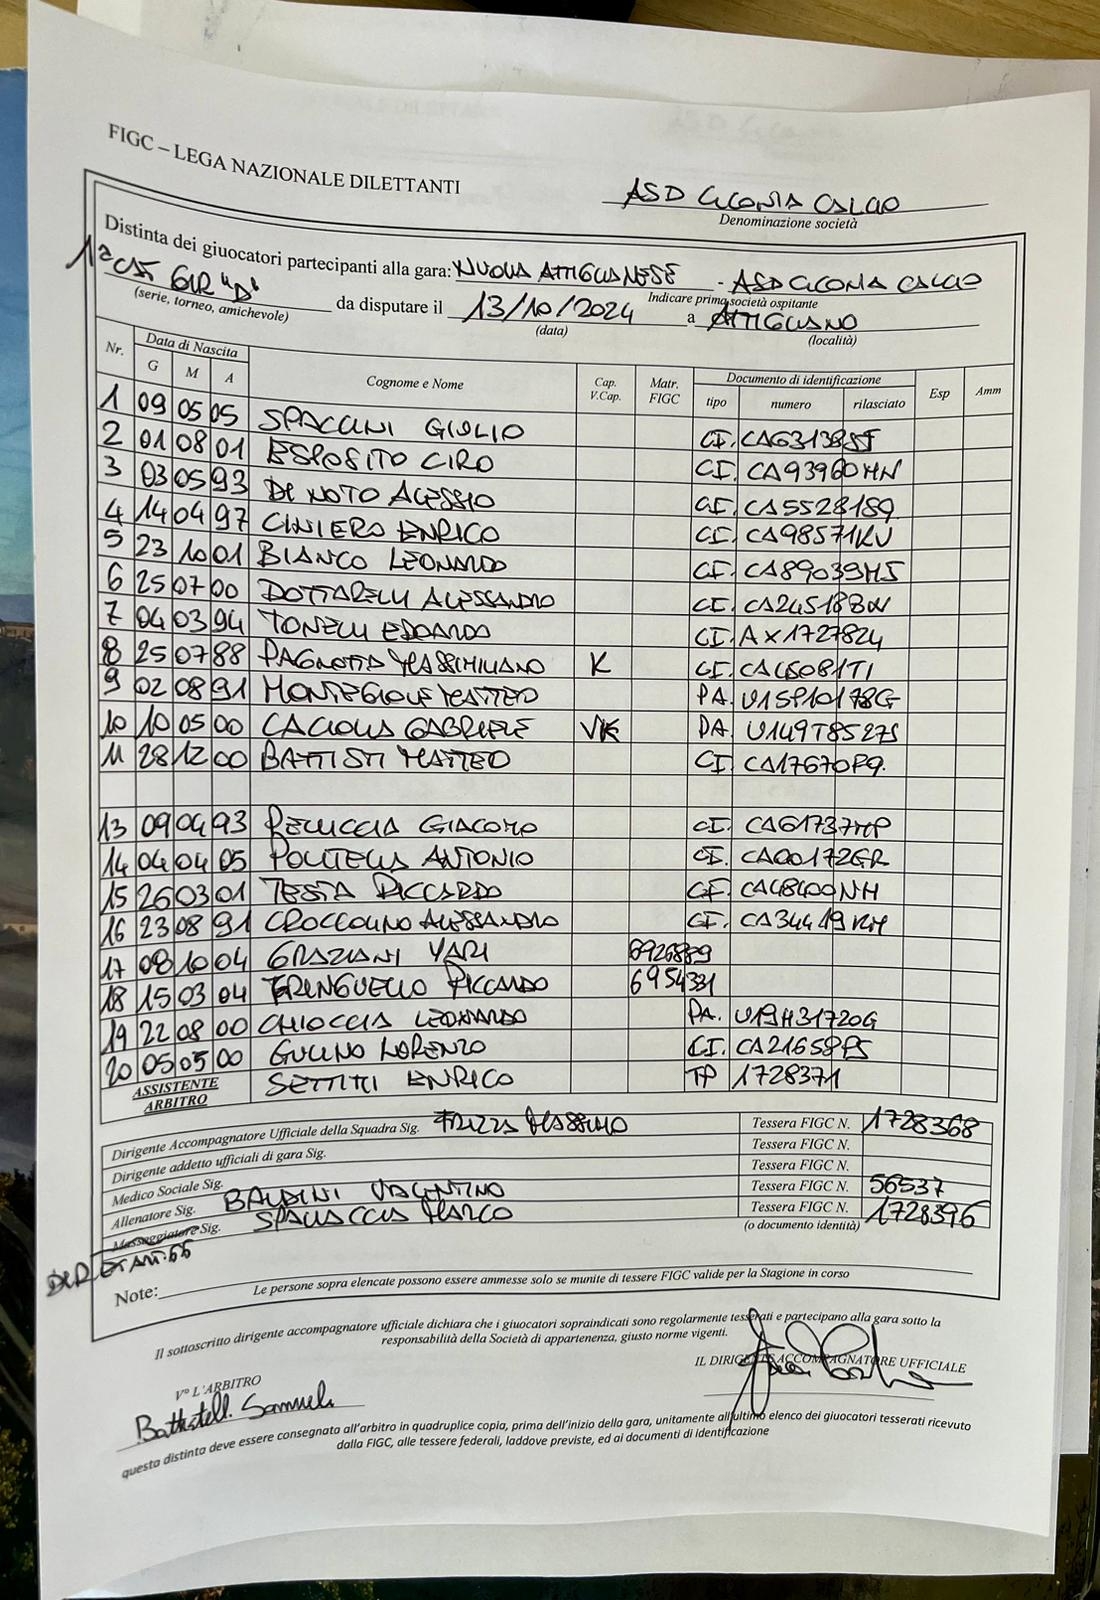 FIGC – LEGA NAZIONALE DILETTANTI
ASD CICONIA CALCIO
Denominazione società
Distinta dei giuocatori partecipanti alla gara: NUOVA ATTIGLIANESE - ASD CICONIA CALCIO
Indicare prima società ospitante
1ª CAT GIR "D" da disputare il 13/10/2024 a ATTIGLIANO
(serie, torneo, amichevole) (data) (località)
Nr. Data di Nascita Cognome e Nome Cap. V.Cap. Matr. FIGC Documento di identificazione Esp Amm
G M A tipo numero rilasciato
1 09 05 05 SPACCINI GIULIO CI. CA63138SF
2 01 08 01 ESPOSITO CIRO CI. CA93960HN
3 03 05 93 DI NOTO ALESSIO CI. CA55281
4 14 04 97 CINIERO ENRICO CI. CA98571KV
5 23 10 01 BIANCO LEONARDO CI. CA89039
6 25 07 00 DOTTARELLI ALESSANDRO CI. CA24518
7 04 03 94 TONELLI EDOARDO CI. AX1727824
8 25 07 88 PAGNOTTA MASSIMILIANO K CI.
9 02 08 91 MONTEGIOVE MATTEO PA.
10 10 05 00 CACIOLLA GABRIELE VK PA. U149T8527S
11 28 12 00 BATTISTI MATTEO CI. CA17670PQ.
13 09 04 93 PELUCCIA GIACOMO CI. CA61737MP
14 04 04 05 POLITELLA ANTONIO CI. CA00172GR
15 26 03 01 TESTA RICCARDO CI. CA48400NH
16 23 08 91 CROCCOLINO ALESSANDRO CI. CA34419
17 08 10 04 GRAZIANI YARI 6926889
18 15 03 04 FRINGUELLO RICCARDO 6954331
19 22 08 00 CHIOCCIA LEONARDO PA. U19H31720G
20 05 05 00 GULINO LORENZO CI. CA21658PS
ASSISTENTE ARBITRO SETTIMI ENRICO TP 1728371
Dirigente Accompagnatore Ufficiale della Squadra Sig. FRIZZA MASSIMO Tessera FIGC N. 1728368
Dirigente addetto ufficiali di gara Sig. Tessera FIGC N.
Medico Sociale Sig. Tessera FIGC N.
Allenatore Sig. BALDINI VALENTINO Tessera FIGC N. 56537
Massaggiatore Sig. SPALLACCIA MARCO Tessera FIGC N. 1728396
(o documento identità)
Note:
Le persone sopra elencate possono essere ammesse solo se munite di tessere FIGC valide per la Stagione in corso
Il sottoscritto dirigente accompagnatore ufficiale dichiara che i giuocatori sopraindicati sono regolarmente tesserati e partecipano alla gara sotto la
responsabilità della Società di appartenenza, giusto norme vigenti.
V° L'ARBITRO IL DIRIGENTE ACCOMPAGNATORE UFFICIALE
Samuele
questa distinta deve essere consegnata all'arbitro in quadruplice copia, prima dell'inizio della gara, unitamente all'ultimo elenco dei giuocatori tesserati ricevuto
dalla FIGC, alle tessere federali, laddove previste, ed ai documenti di identificazione